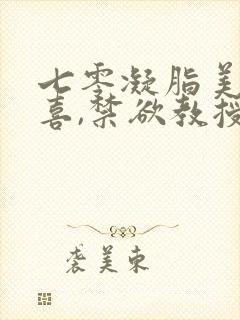 七零凝脂美
喜,禁欲教授
袭美东